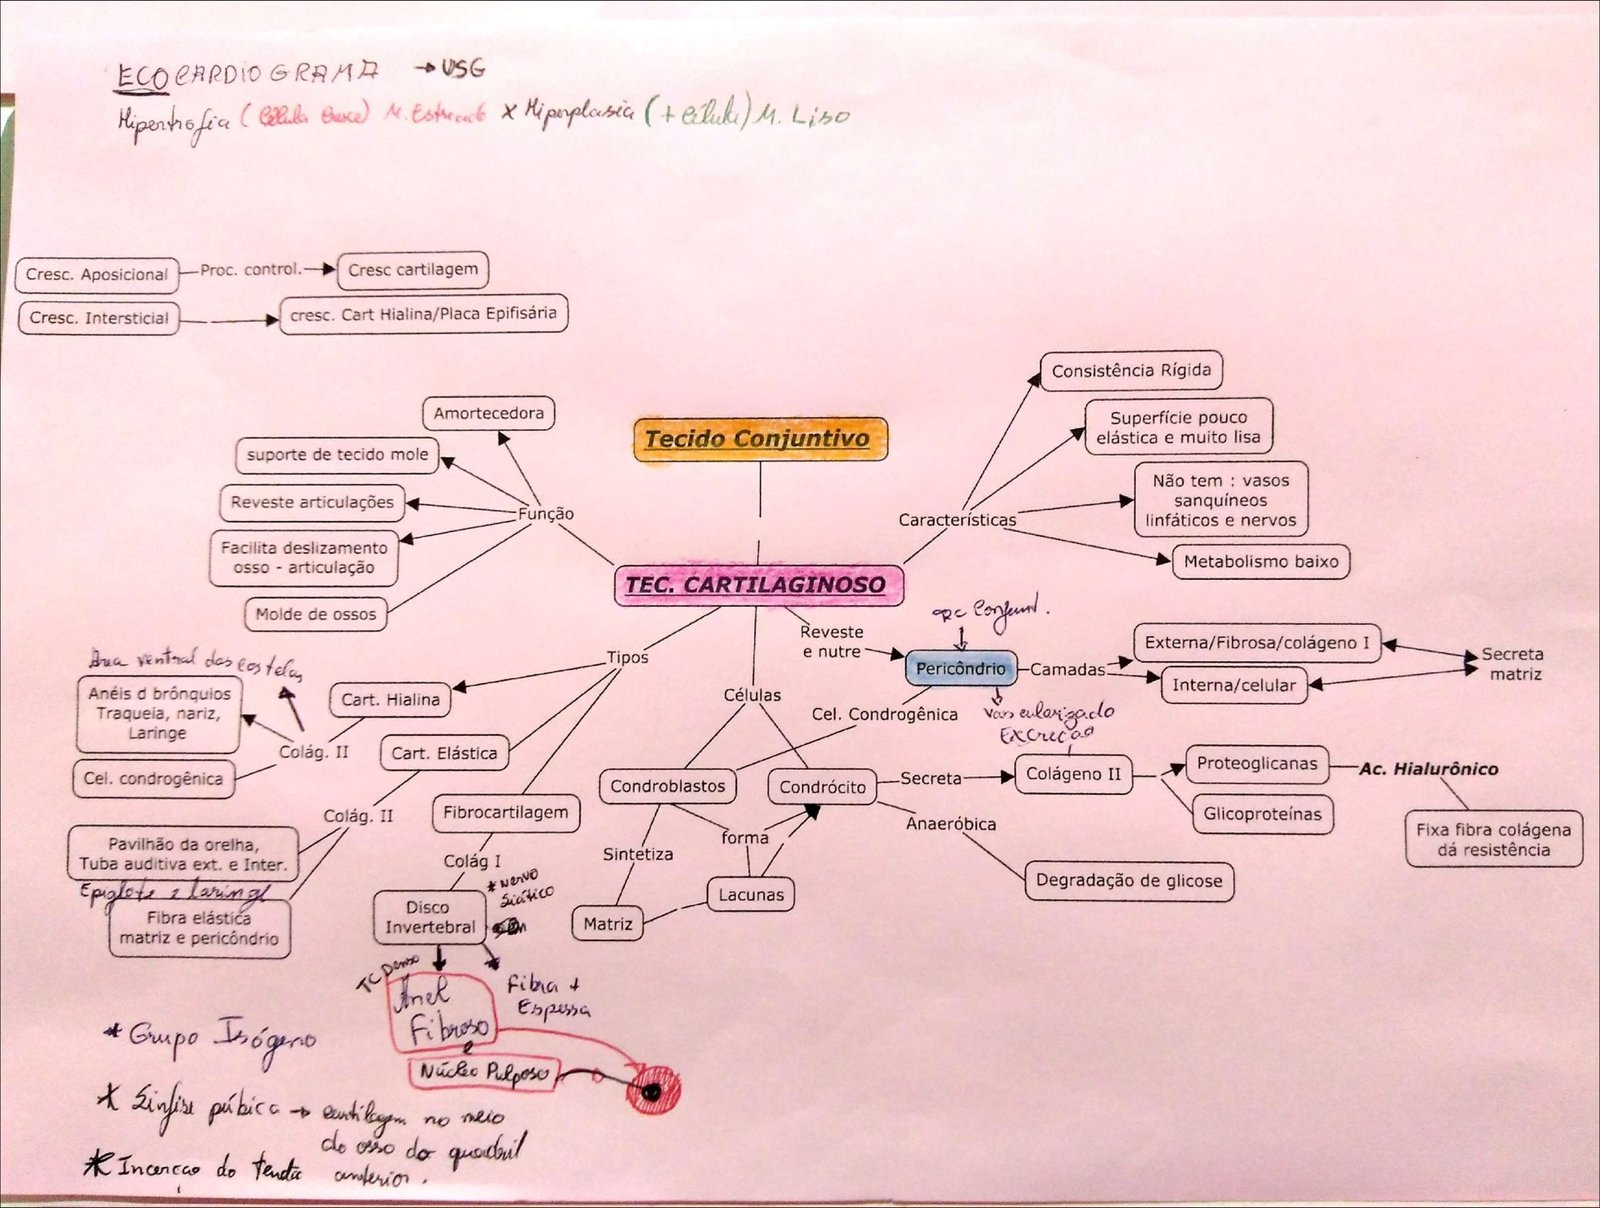 ECOCARDIOGRAMA → USG
Hipertrofia (Célula cresce) M. Estriado x Hiperplasia (+ célula) M. Liso
Cresc. Aposicional
Proc. control.
Cresc cartilagem
Cresc. Intersticial
cresc. Cart Hialina/Placa Epifisária
Consistência Rígida
Amortecedora
Superfície pouco
elástica e muito lisa
Tecido Conjuntivo
suporte de tecido mole
Não tem : vasos
sanquíneos
linfáticos e nervos
Reveste articulações
Função
Características
Facilita deslizamento
osso - articulação
Metabolismo baixo
TEC. CARTILAGINOSO
Molde de ossos
Conjunt.
Reveste
e nutre
Externa/Fibrosa/colágeno I
Pericôndrio
Camadas
Secreta
matriz
Interna/celular
Tipos
Área ventral das costelas
Anéis d brônquios
Traqueia, nariz,
Laringe
Cart. Hialina
Células
Cel. Condrogênica
vascularizado
Excreção
Colág. II
Cart. Elástica
Cel. condrogênica
Condroblastos
Condrócito
Secreta
Colágeno II
Proteoglicanas
Ac. Hialurônico
Fibrocartilagem
Colág. II
Glicoproteínas
forma
Anaeróbica
Fixa fibra colágena
dá resistência
Pavilhão da orelha,
Tuba auditiva ext. e Inter.
Epiglote e laringe
Colág I
Sintetiza
* Nervo
Siático
Lacunas
Degradação de glicose
Fibra elástica
matriz e pericôndrio
Disco
Invertebral
Matriz
TC Denso
Anel
Fibroso
e
Núcleo Pulposo
Fibra +
Espessa
* Grupo Isógeno
* Sínfise púbica → cartilagem no meio
do osso do quadril
anterior.
* Incerçao do